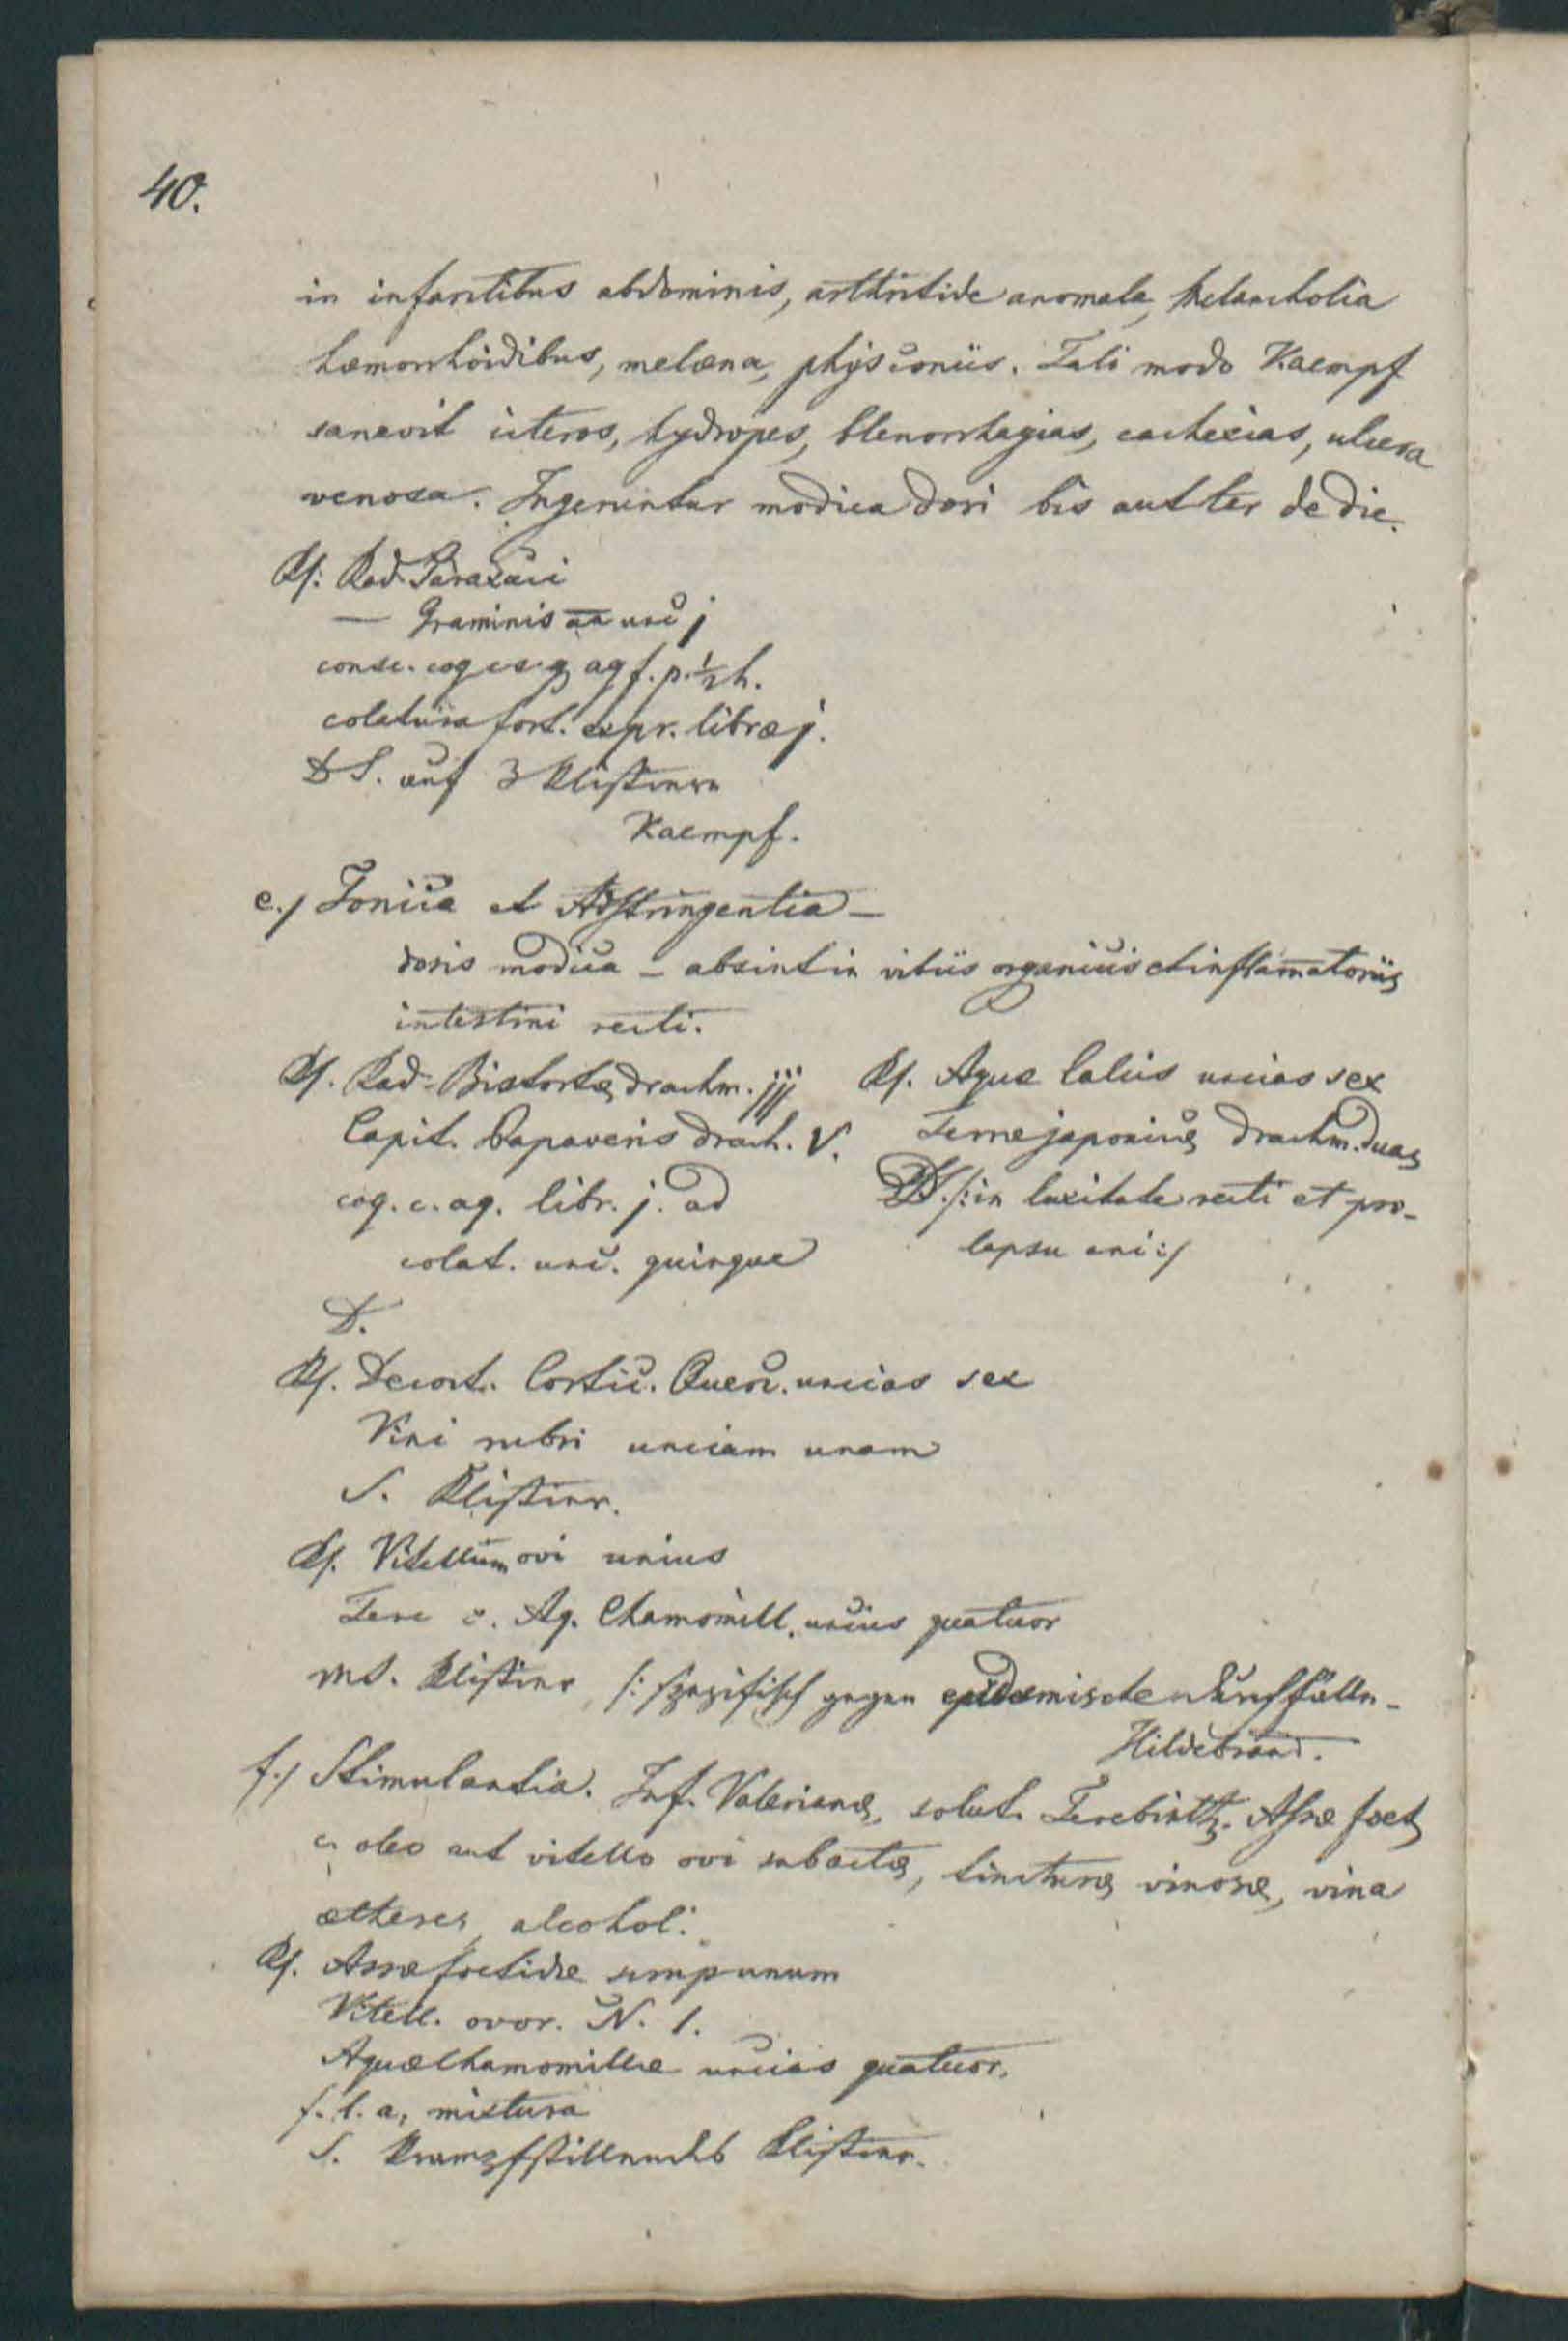 40.
in infarctibus abdominis, arthritide anomala, Melancholia
hæmorrhoidibus, melæna, physconiis. Tali modo Kaempf
sanavit icteros, hydropes, blenorrhagias, cachexias, ulcera
venosa. Ingerentur modica dosi bis aut ter de die.
Rp: Rad Taraxaci
— Graminis aa unc j
consc. coq c s. q aq f. p. 1/2 h.
colatura fort. expr. libræ j.
DS. auf 3 Klistiere
Kaempf.
e./ Tonica et Adstringentia —
dosis modica — absint in vitiis organicis et inflamatoriis
intestini recti.
Rp. Rad. Bistortæ drachm. jjj
Capit. Papaveris drach. V.
coq. c. aq. libr. j. ad
colat. unc. quinque
D.
Rp. Aquæ Calcis uncias sex
Terræ japonicæ drachm. duas
DS. /: in laxitate recti et pro-
lapsu ani :/
Rp. Decoct. Cortic. Querc. uncias sex
Vini rubri unciam unam
S. Klistier.
Rp. Vitellum ovi unius
Tere c. Aq. Chamomill. uncias quatuor
MS. Klistier /: spezifisch gegen epidemische Durchfälle -
Hildebrand.
f./ Stimulantia. Inf. Valerianæ, solut. Terebinth. Assæ foet
c. oleo aut vitello ovi subactæ, tincturæ vinosæ, vina
ætheres, alcohol.
Rp. Assæ foetidæ scrup unum
Vitell. ovor. N. 1.
Aquæ Chamomillæ uncias quatuor.
f. l. a. mixtura
S. Krampfstillendes Klistier.